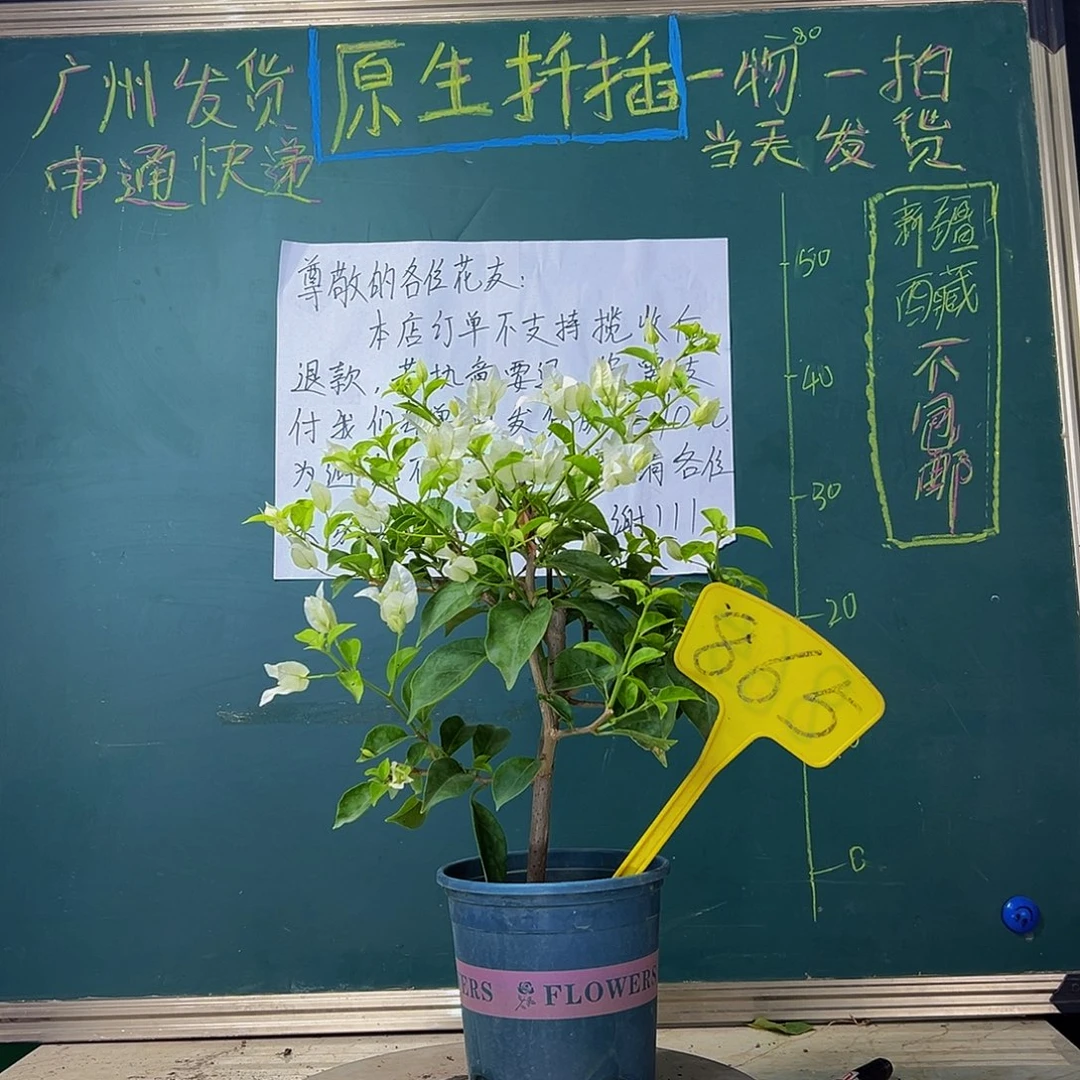 广州发货
原生扦插
一物一拍
80
申通快递
当天发货
新疆
西藏
不包邮
尊敬的各位花友:
本店订单不支持揽收后
退款,若执意要
付我们 发
为 不 各位
谢!!!
50
40
30
20
0
865
ERS FLOWERS